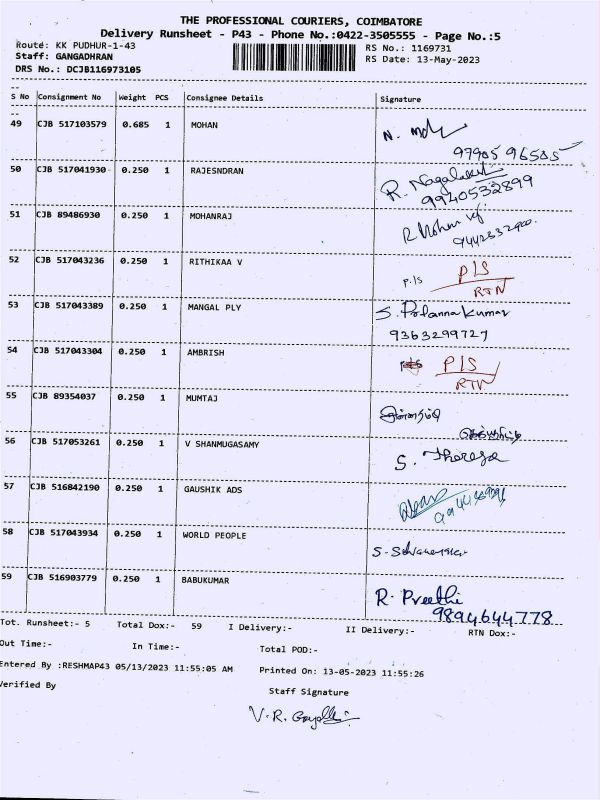 THE PROFESSIONAL COURIERS, COIMBATORE
Delivery Runsheet - P43 - Phone No.:0422-3505555 - Page No.:5
Route: KK PUDHUR-1-43 RS No.: 1169731
Staff: GANGADHRAN RS Date: 13-May-2023
DRS No.: DCJB116973105
S No Consignment No Weight PCS Consignee Details Signature
49 CJB 517103579 0.685 1 MOHAN N.
97905 96505
50 CJB 517041930 0.250 1 RAJESNDRAN R.
9940532899
51 CJB 89486930 0.250 1 MOHANRAJ R Mohan
52 CJB 517043236 0.250 1 RITHIKAA V P/S P/S
RTN
53 CJB 517043389 0.250 1 MANGAL PLY S. Kumar
9363299727
54 CJB 517043304 0.250 1 AMBRISH P/S
RTN
55 CJB 89354037 0.250 1 MUMTAJ
56 CJB 517053261 0.250 1 V SHANMUGASAMY S.
57 CJB 516842190 0.250 1 GAUSHIK ADS
58 CJB 517043934 0.250 1 WORLD PEOPLE S.
59 CJB 516903779 0.250 1 BABUKUMAR R. Preethi
9894644778
Tot. Runsheet:- 5 Total Dox:- 59 I Delivery:- II Delivery:- RTN Dox:-
Out Time:- In Time:- Total POD:-
Entered By :RESHMAP43 05/13/2023 11:55:05 AM Printed On: 13-05-2023 11:55:26
Verified By Staff Signature
V.R.